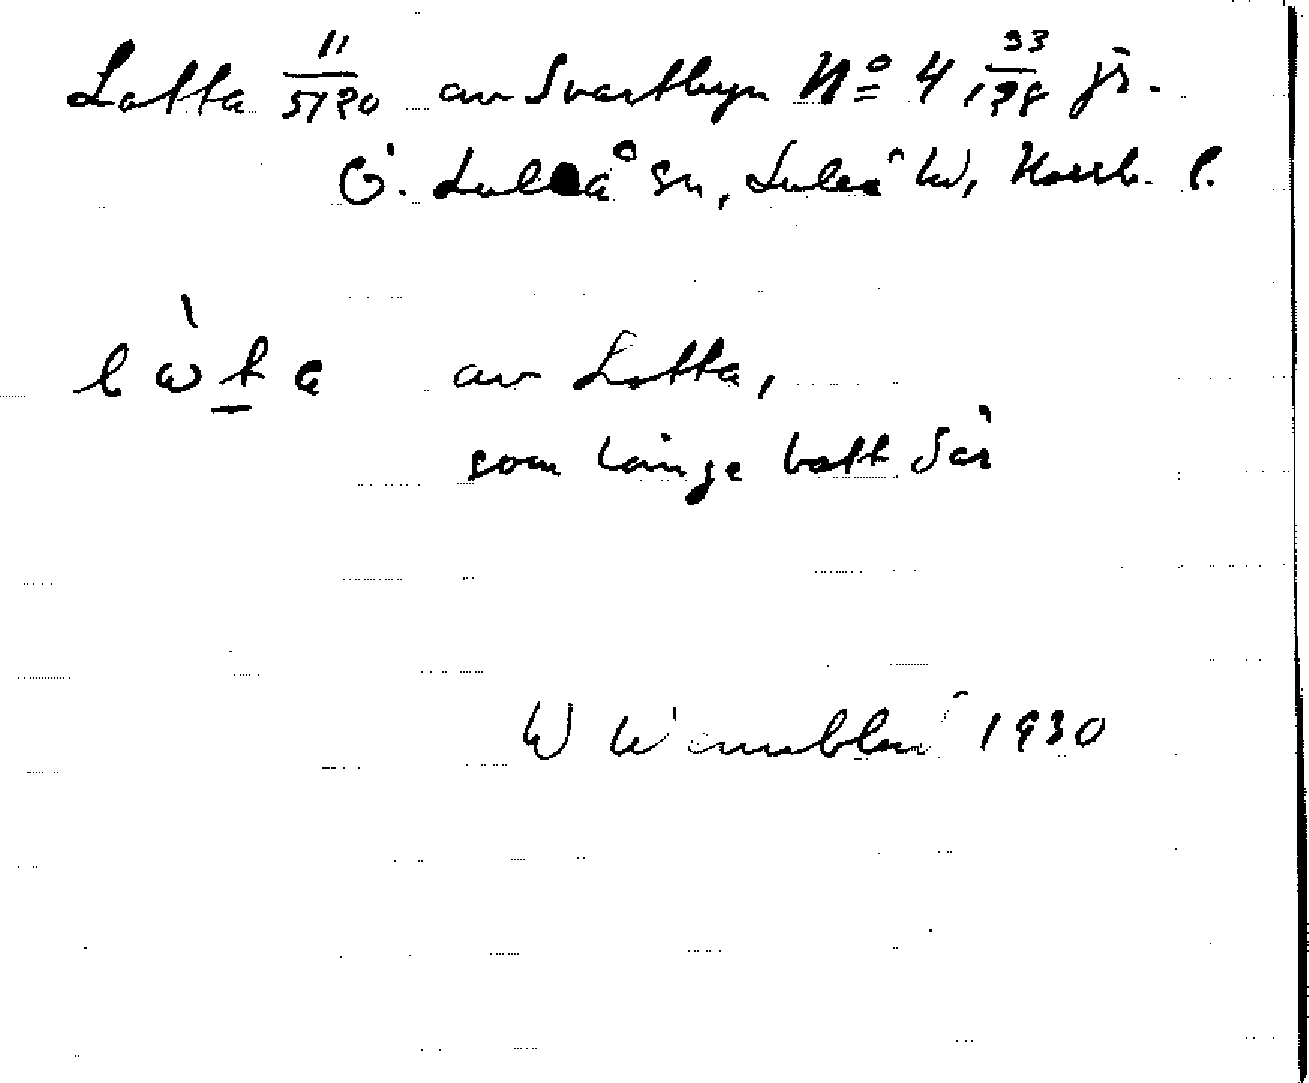 Lotta 11/5120 av Svartbyn No 4 93/128 jr.
Ö. Luleå sn, Luleå tu, Norrb. l.
lòta av Lotta,
som länge bott där
W Wennebland 1930